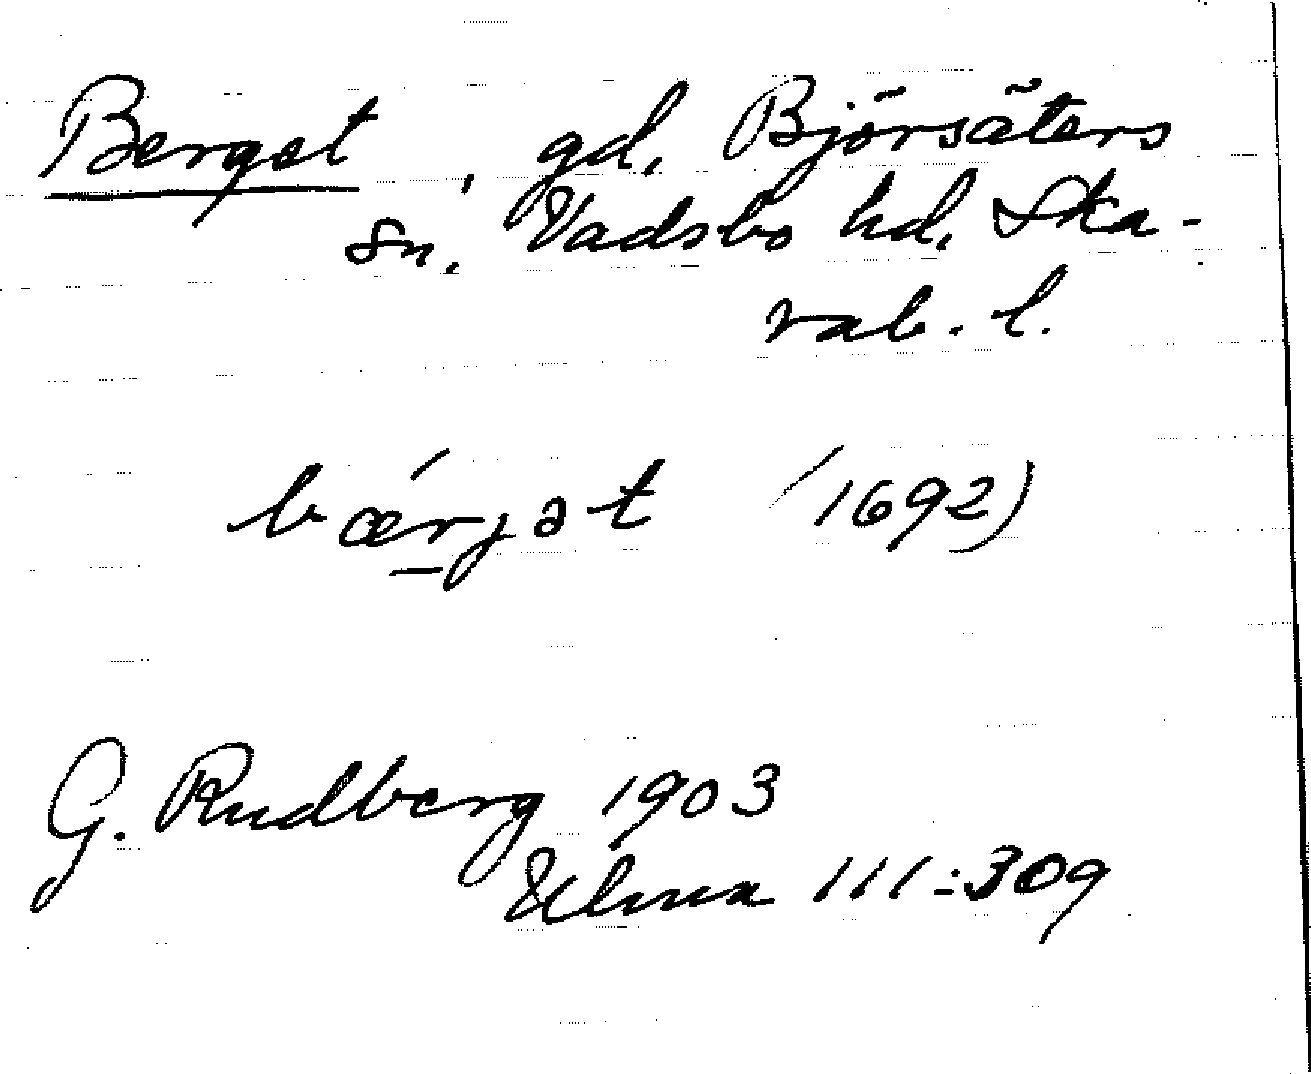 Berget, gd, Björsäters
sn, Vadsbo hd, Ska-
rab. l.
bǽrjət (1692)
G. Rudberg 1903
Ulma 111:309